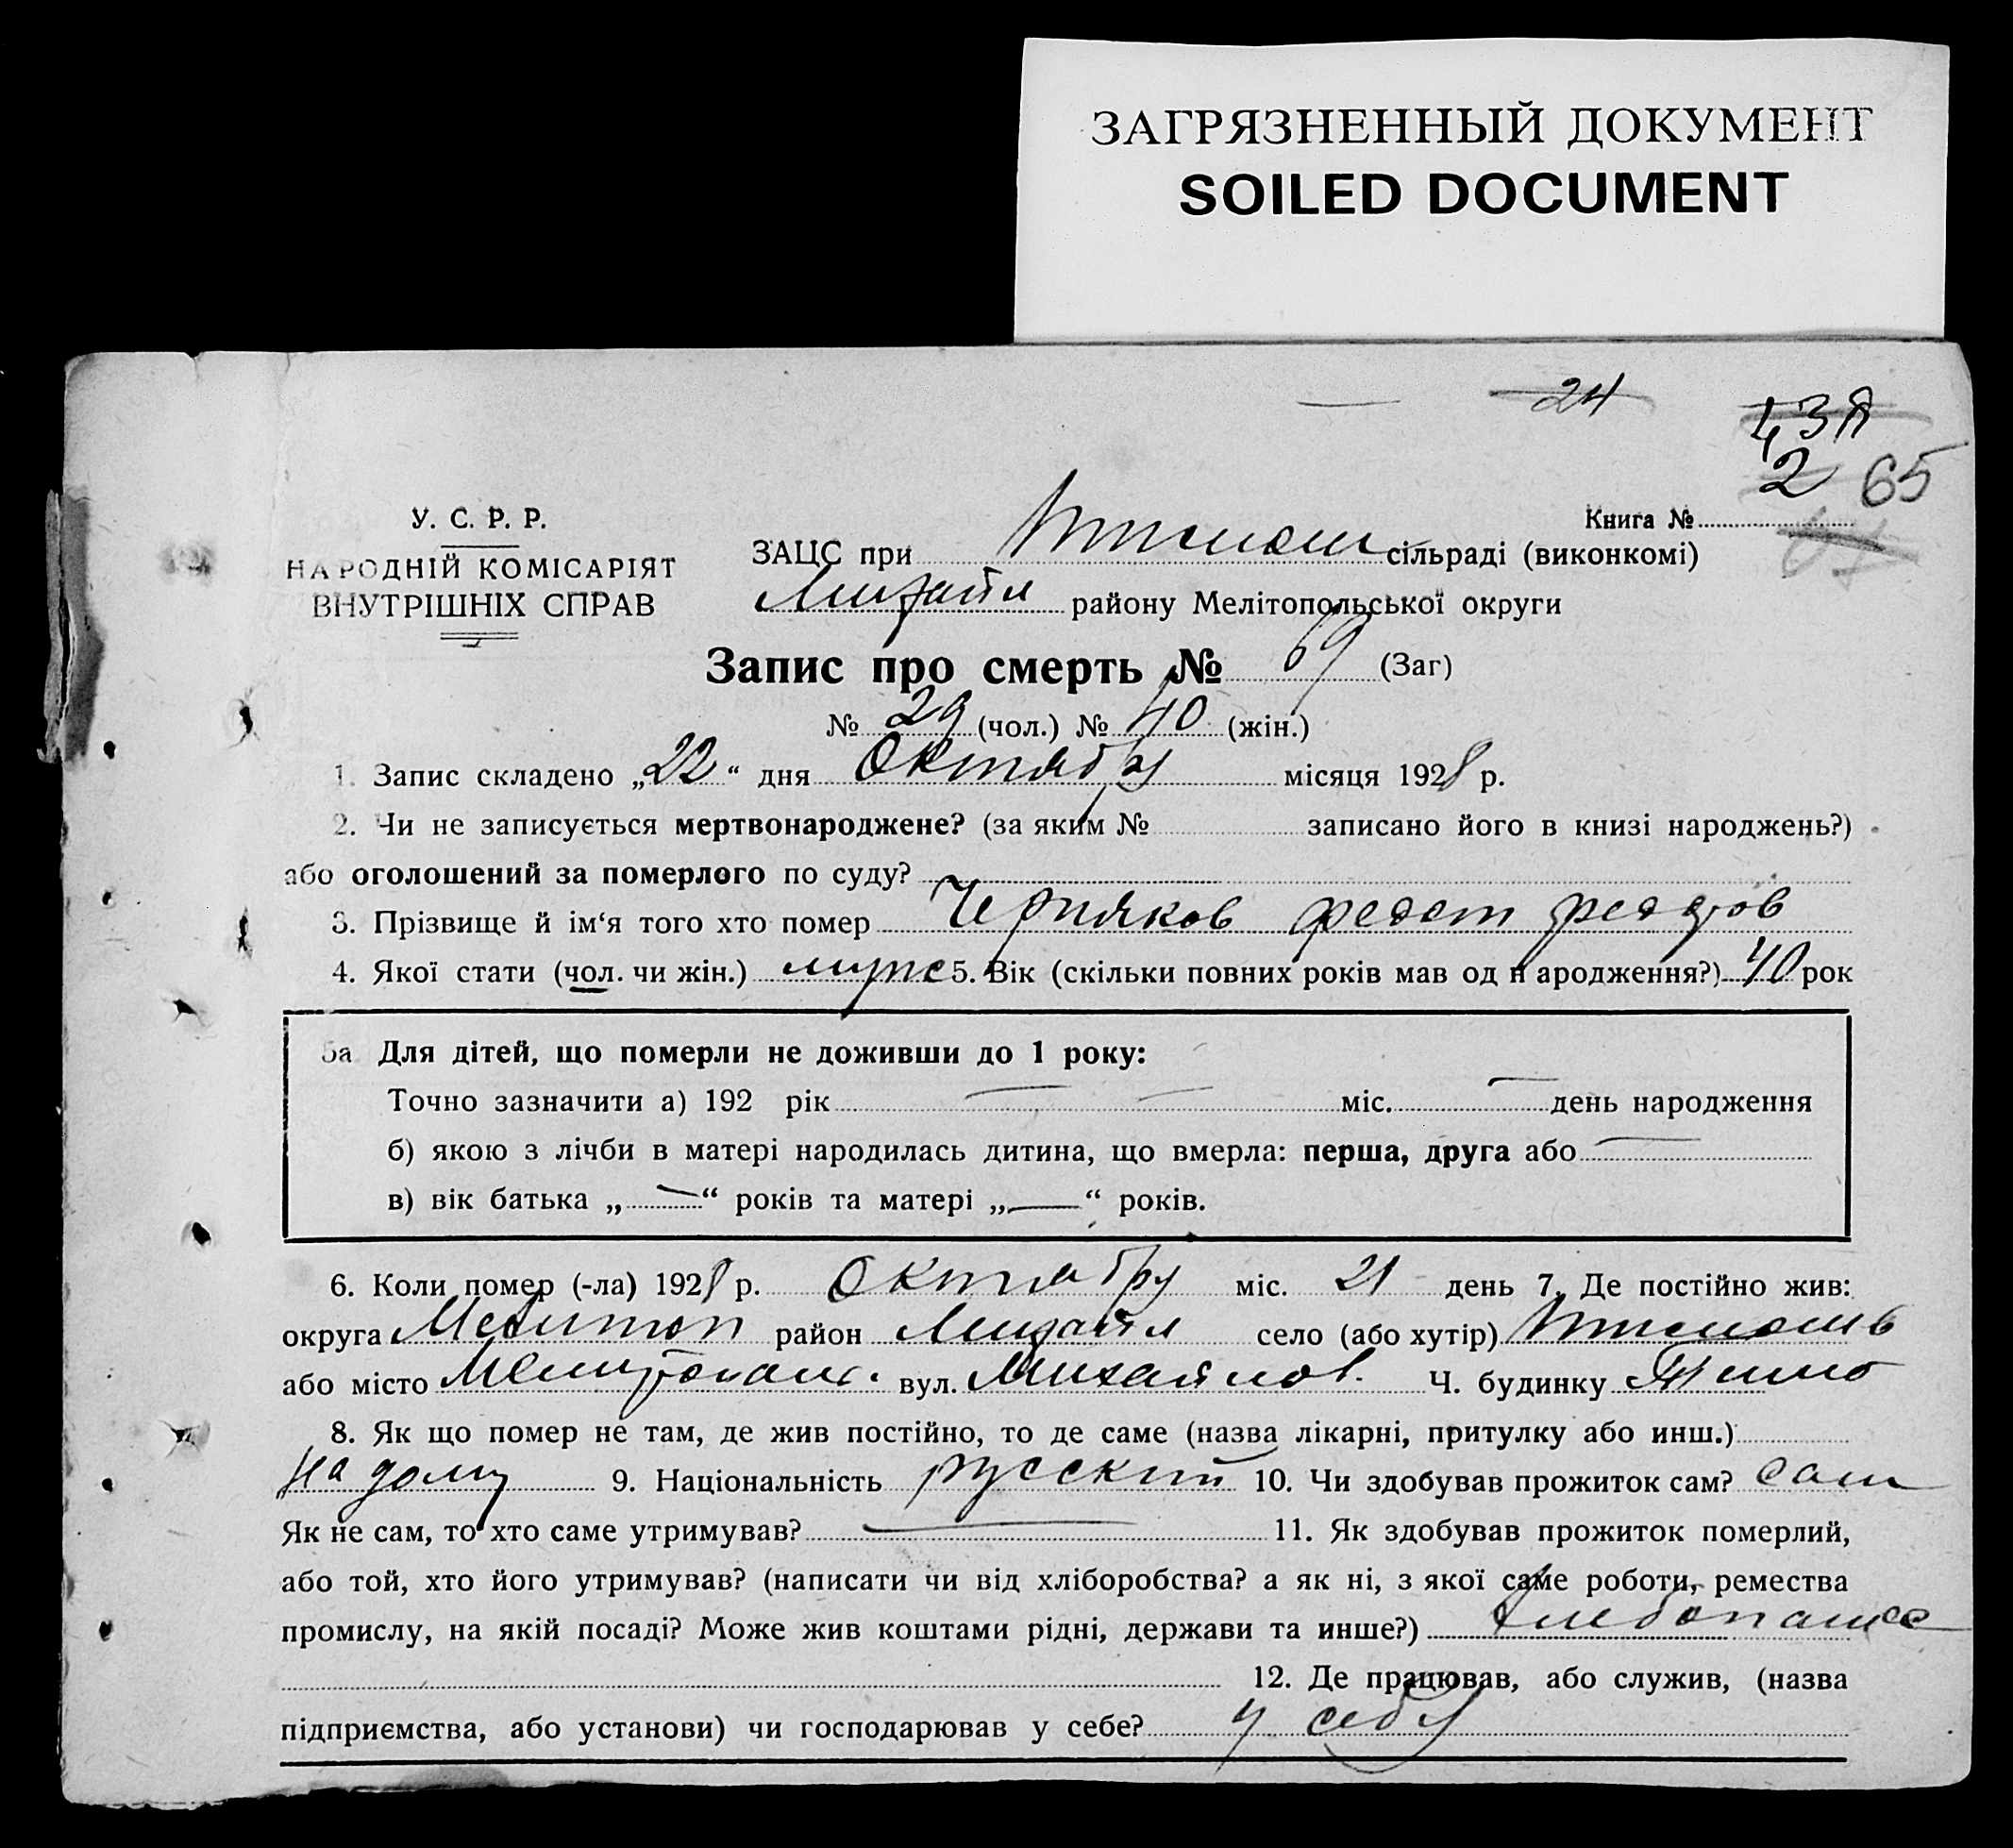 ЗАГРЯЗНЕННЫЙ ДОКУМЕНТ
SOILED DOCUMENT
24
2 65
У. С. Р. Р.
Книга №
НАРОДНІЙ КОМІСАРІЯТ
ВНУТРІШНІХ СПРАВ
ЗАЦС при сільраді (виконкомі)
Михайл району Мелітопольської округи
Запис про смерть № 69 (Заг)
№ 29 (чол.) № 40 (жін.)
1. Запис складено „22“ дня Октября місяця 1928 р.
2. Чи не записується мертвонароджене? (за яким № записано його в книзі народжень?)
або оголошений за померлого по суду?
3. Прізвище й ім‘я того хто помер Черняков Федот
4. Якої стати (чол. чи жін.) муж 5. Вік (скільки повних років мав од н ародження?) 40 рок
5а Для дітей, що померли не доживши до 1 року:
Точно зазначити а) 192 рік — — міс. — день народження
б) якою з лічби в матері народилась дитина, що вмерла: перша, друга або —
в) вік батька „—“ років та матері „—“ років.
6. Коли помер (-ла) 1928 р. Октябру міс. 21 день 7. Де постійно жив:
округа Мелитоп район Михайл село (або хутір)
або місто вул. Михайлов. Ч. будинку
8. Як що помер не там, де жив постійно, то де саме (назва лікарні, притулку або инш.)
на дому 9. Національність русский 10. Чи здобував прожиток сам? сам
Як не сам, то хто саме утримував? — 11. Як здобував прожиток померлий,
або той, хто його утримував? (написати чи від хліборобства? а як ні, з якої саме роботи, ремества
промислу, на якій посаді? Може жив коштами рідні, держави та инше?) Хлебопаше
12. Де працював, або служив, (назва
підприємства, або установи) чи господарював у себе? у себя